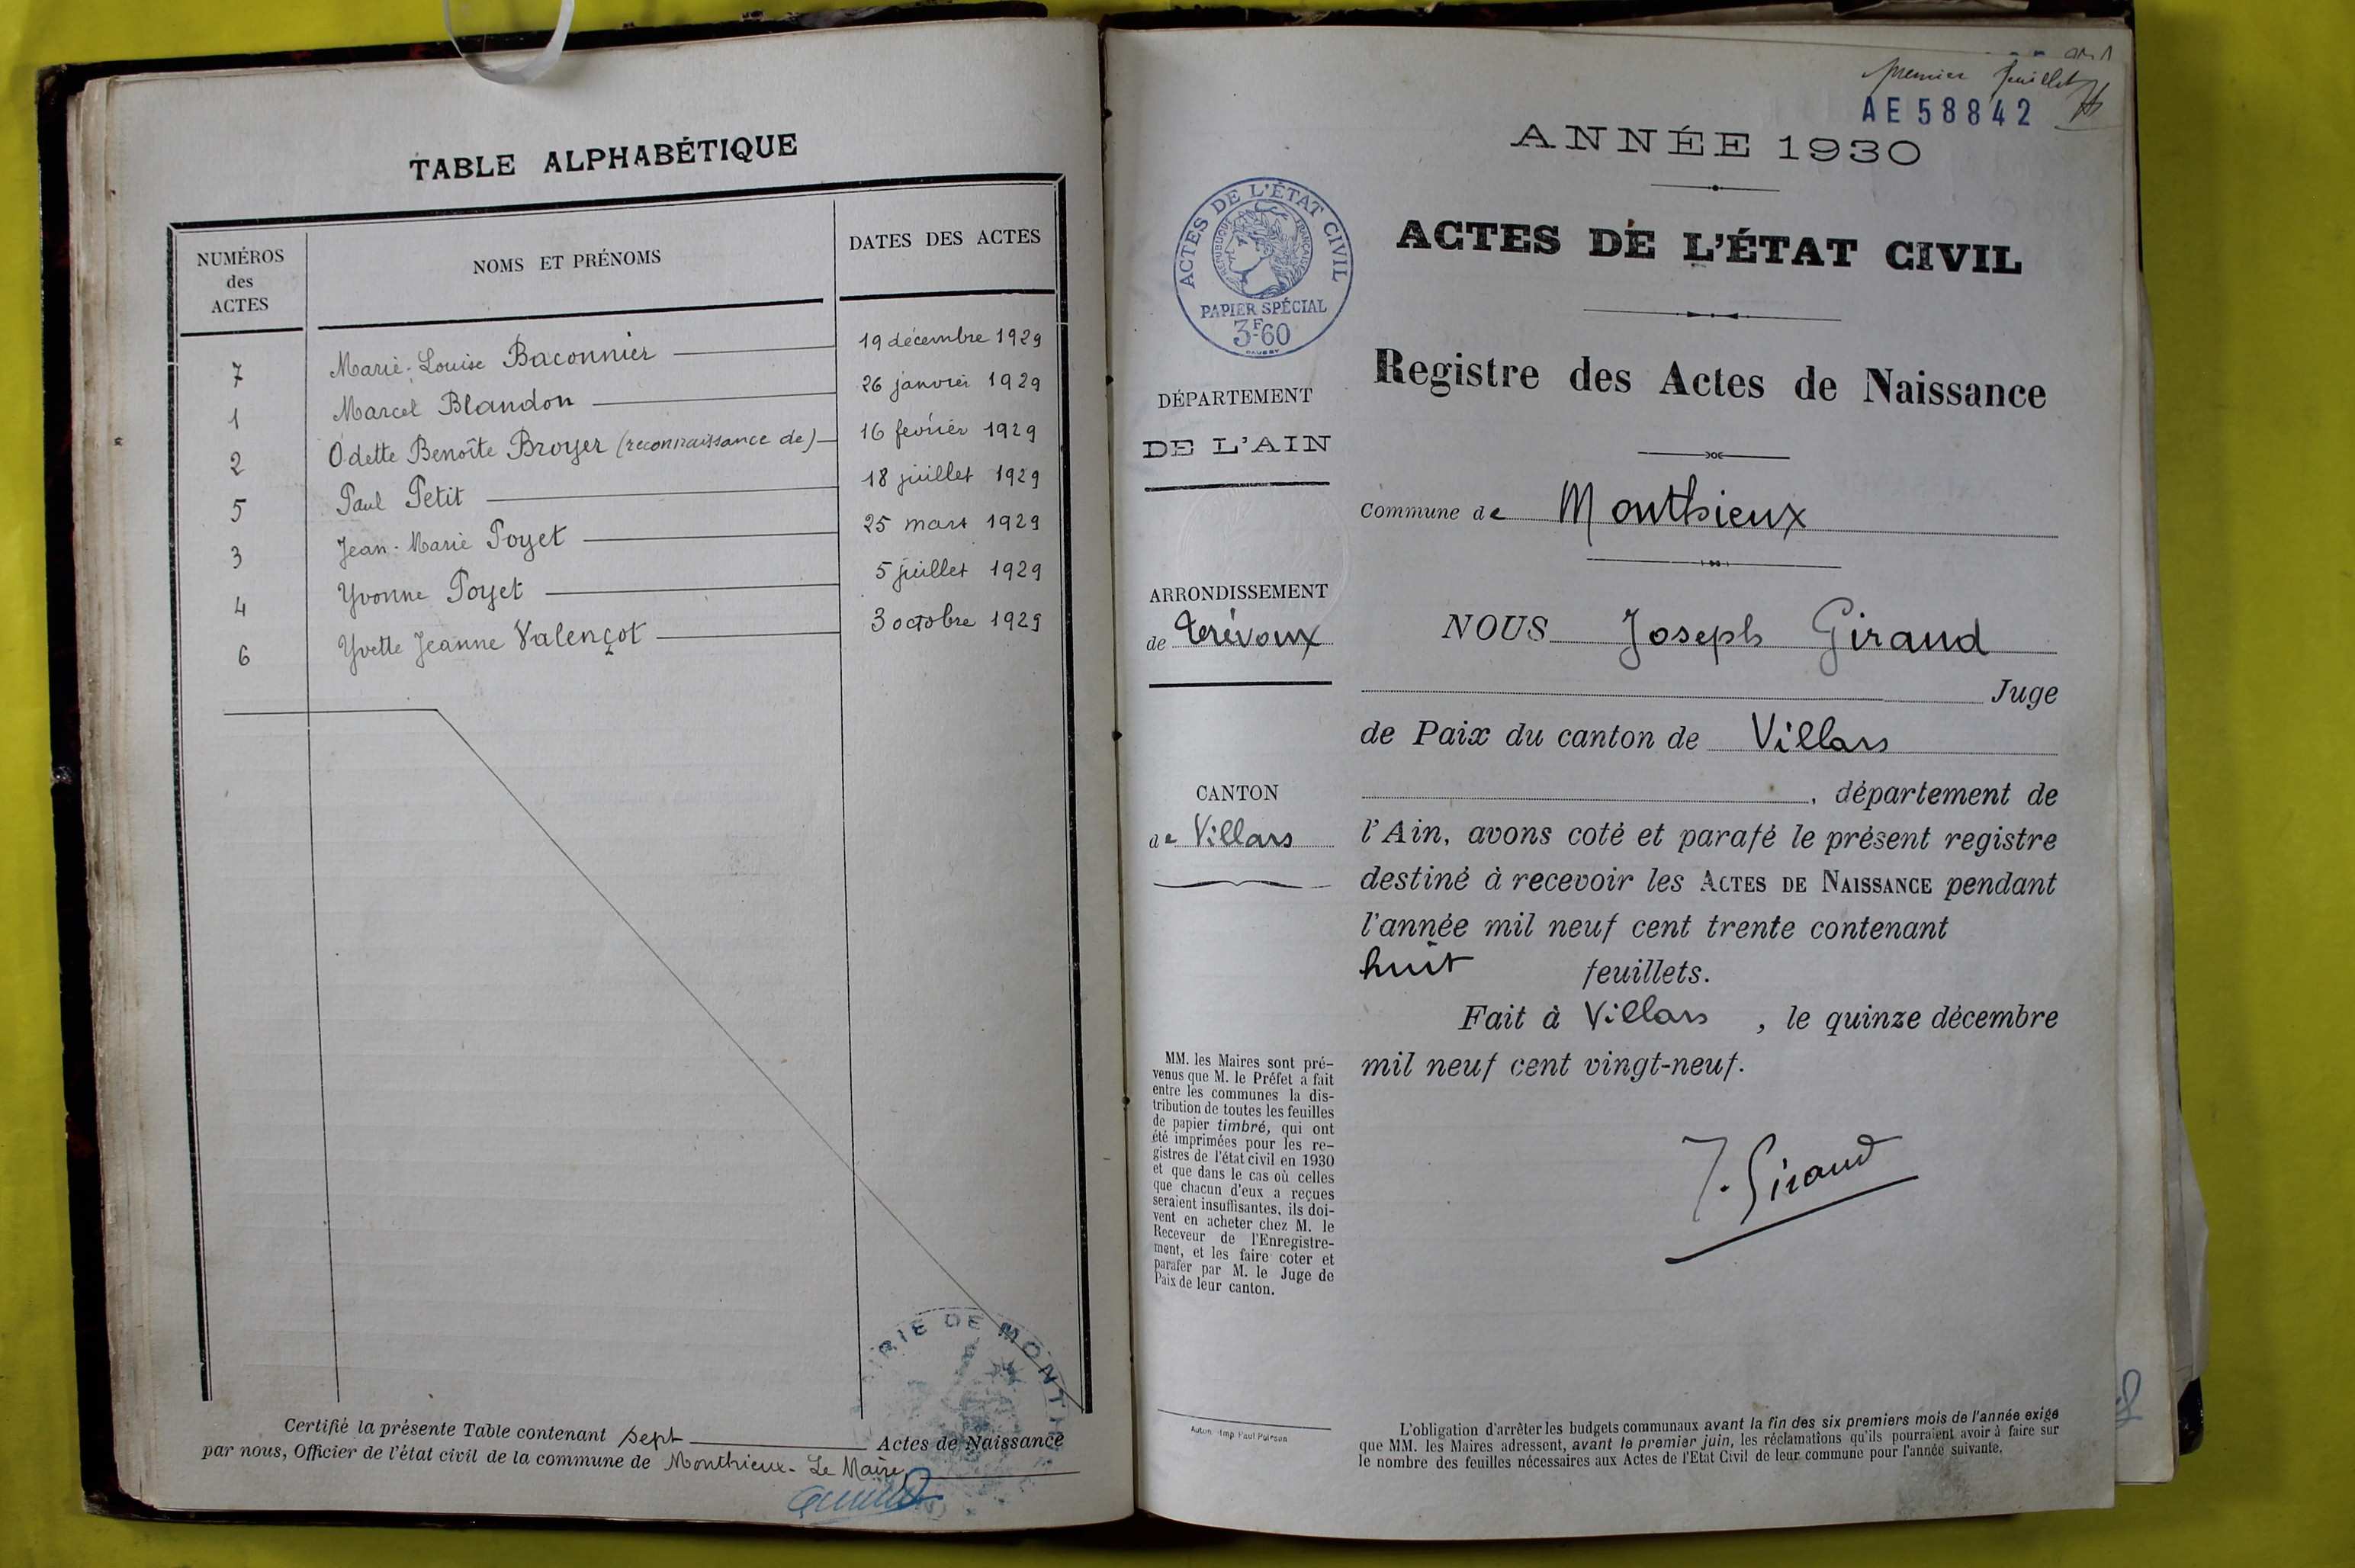 TABLE ALPHABÉTIQUE
NUMÉROS
des
ACTES
NOMS ET PRÉNOMS
DATES DES ACTES
7 Marie-Louise Baconnier 19 décembre 1929
1 Marcel Blandon 26 janvier 1929
2 Odette Benoîte Broyer (reconnaissance de) 16 février 1929
5 Paul Petit 18 juillet 1929
3 Jean-Marie Poyet 25 mars 1929
4 Yvonne Poyet 5 juillet 1929
6 Yvette Jeanne Valençot 3 octobre 1929
Certifié la présente Table contenant sept Actes de Naissance
par nous, Officier de l'état civil de la commune de Monthieux - Le Maire,
RIE DE MONT
premier feuillet
AE 58842
ANNÉE 1930
ACTES DE L'ÉTAT CIVIL
RÉPUBLIQUE FRANÇAISE
PAPIER SPÉCIAL
3F60
ACTES DE L'ÉTAT CIVIL
Registre des Actes de Naissance
DÉPARTEMENT
DE L'AIN
Commune de Monthieux
ARRONDISSEMENT
de Trévoux
NOUS Joseph Giraud
Juge
de Paix du canton de Villars
CANTON
de Villars
, département de
l'Ain, avons coté et parafé le présent registre
destiné à recevoir les ACTES DE NAISSANCE pendant
l'année mil neuf cent trente contenant
huit feuillets.
Fait à Villars, le quinze décembre
mil neuf cent vingt-neuf.
J. Giraud
MM. les Maires sont pré-
venus que M. le Préfet a fait
entre les communes la dis-
tribution de toutes les feuilles
de papier timbré, qui ont
été imprimées pour les re-
gistres de l'état civil en 1930
et que dans le cas où celles
que chacun d'eux a reçues
seraient insuffisantes, ils doi-
vent en acheter chez M. le
Receveur de l'Enregistre-
ment, et les faire coter et
parafer par M. le Juge de
Paix de leur canton.
Imp. Paul
L'obligation d'arrêter les budgets communaux avant la fin des six premiers mois de l'année exige
que MM. les Maires adressent, avant le premier juin, les réclamations qu'ils pourraient avoir à faire sur
le nombre des feuilles nécessaires aux Actes de l'Etat Civil de leur commune pour l'année suivante.